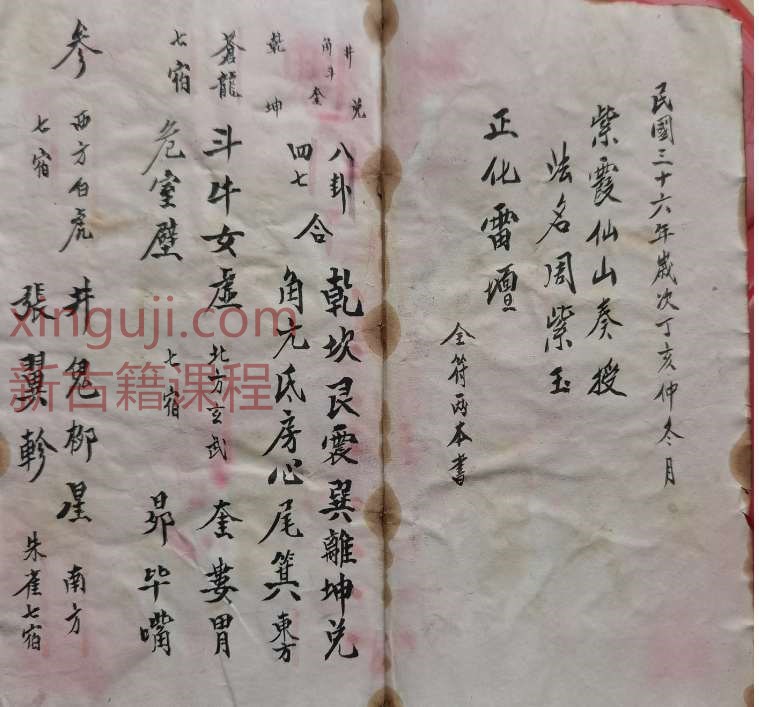 民國三十六年歲次丁亥仲冬月
紫霞仙山奏授
法名周紫玉
正化雷壇
全符兩本書
井 兌
角 斗 奎
乾 坤
八卦
四七
合
乾坎艮震巽離坤兌
角亢氐房心尾箕 東方
蒼龍
七宿
斗牛女虛
危室壁
北方玄武
七宿
奎婁胃
昴毕嘴
參
西方白虎
七宿
井鬼柳星
張翼軫
南方
朱雀七宿
xinguji.com
新古籍课程